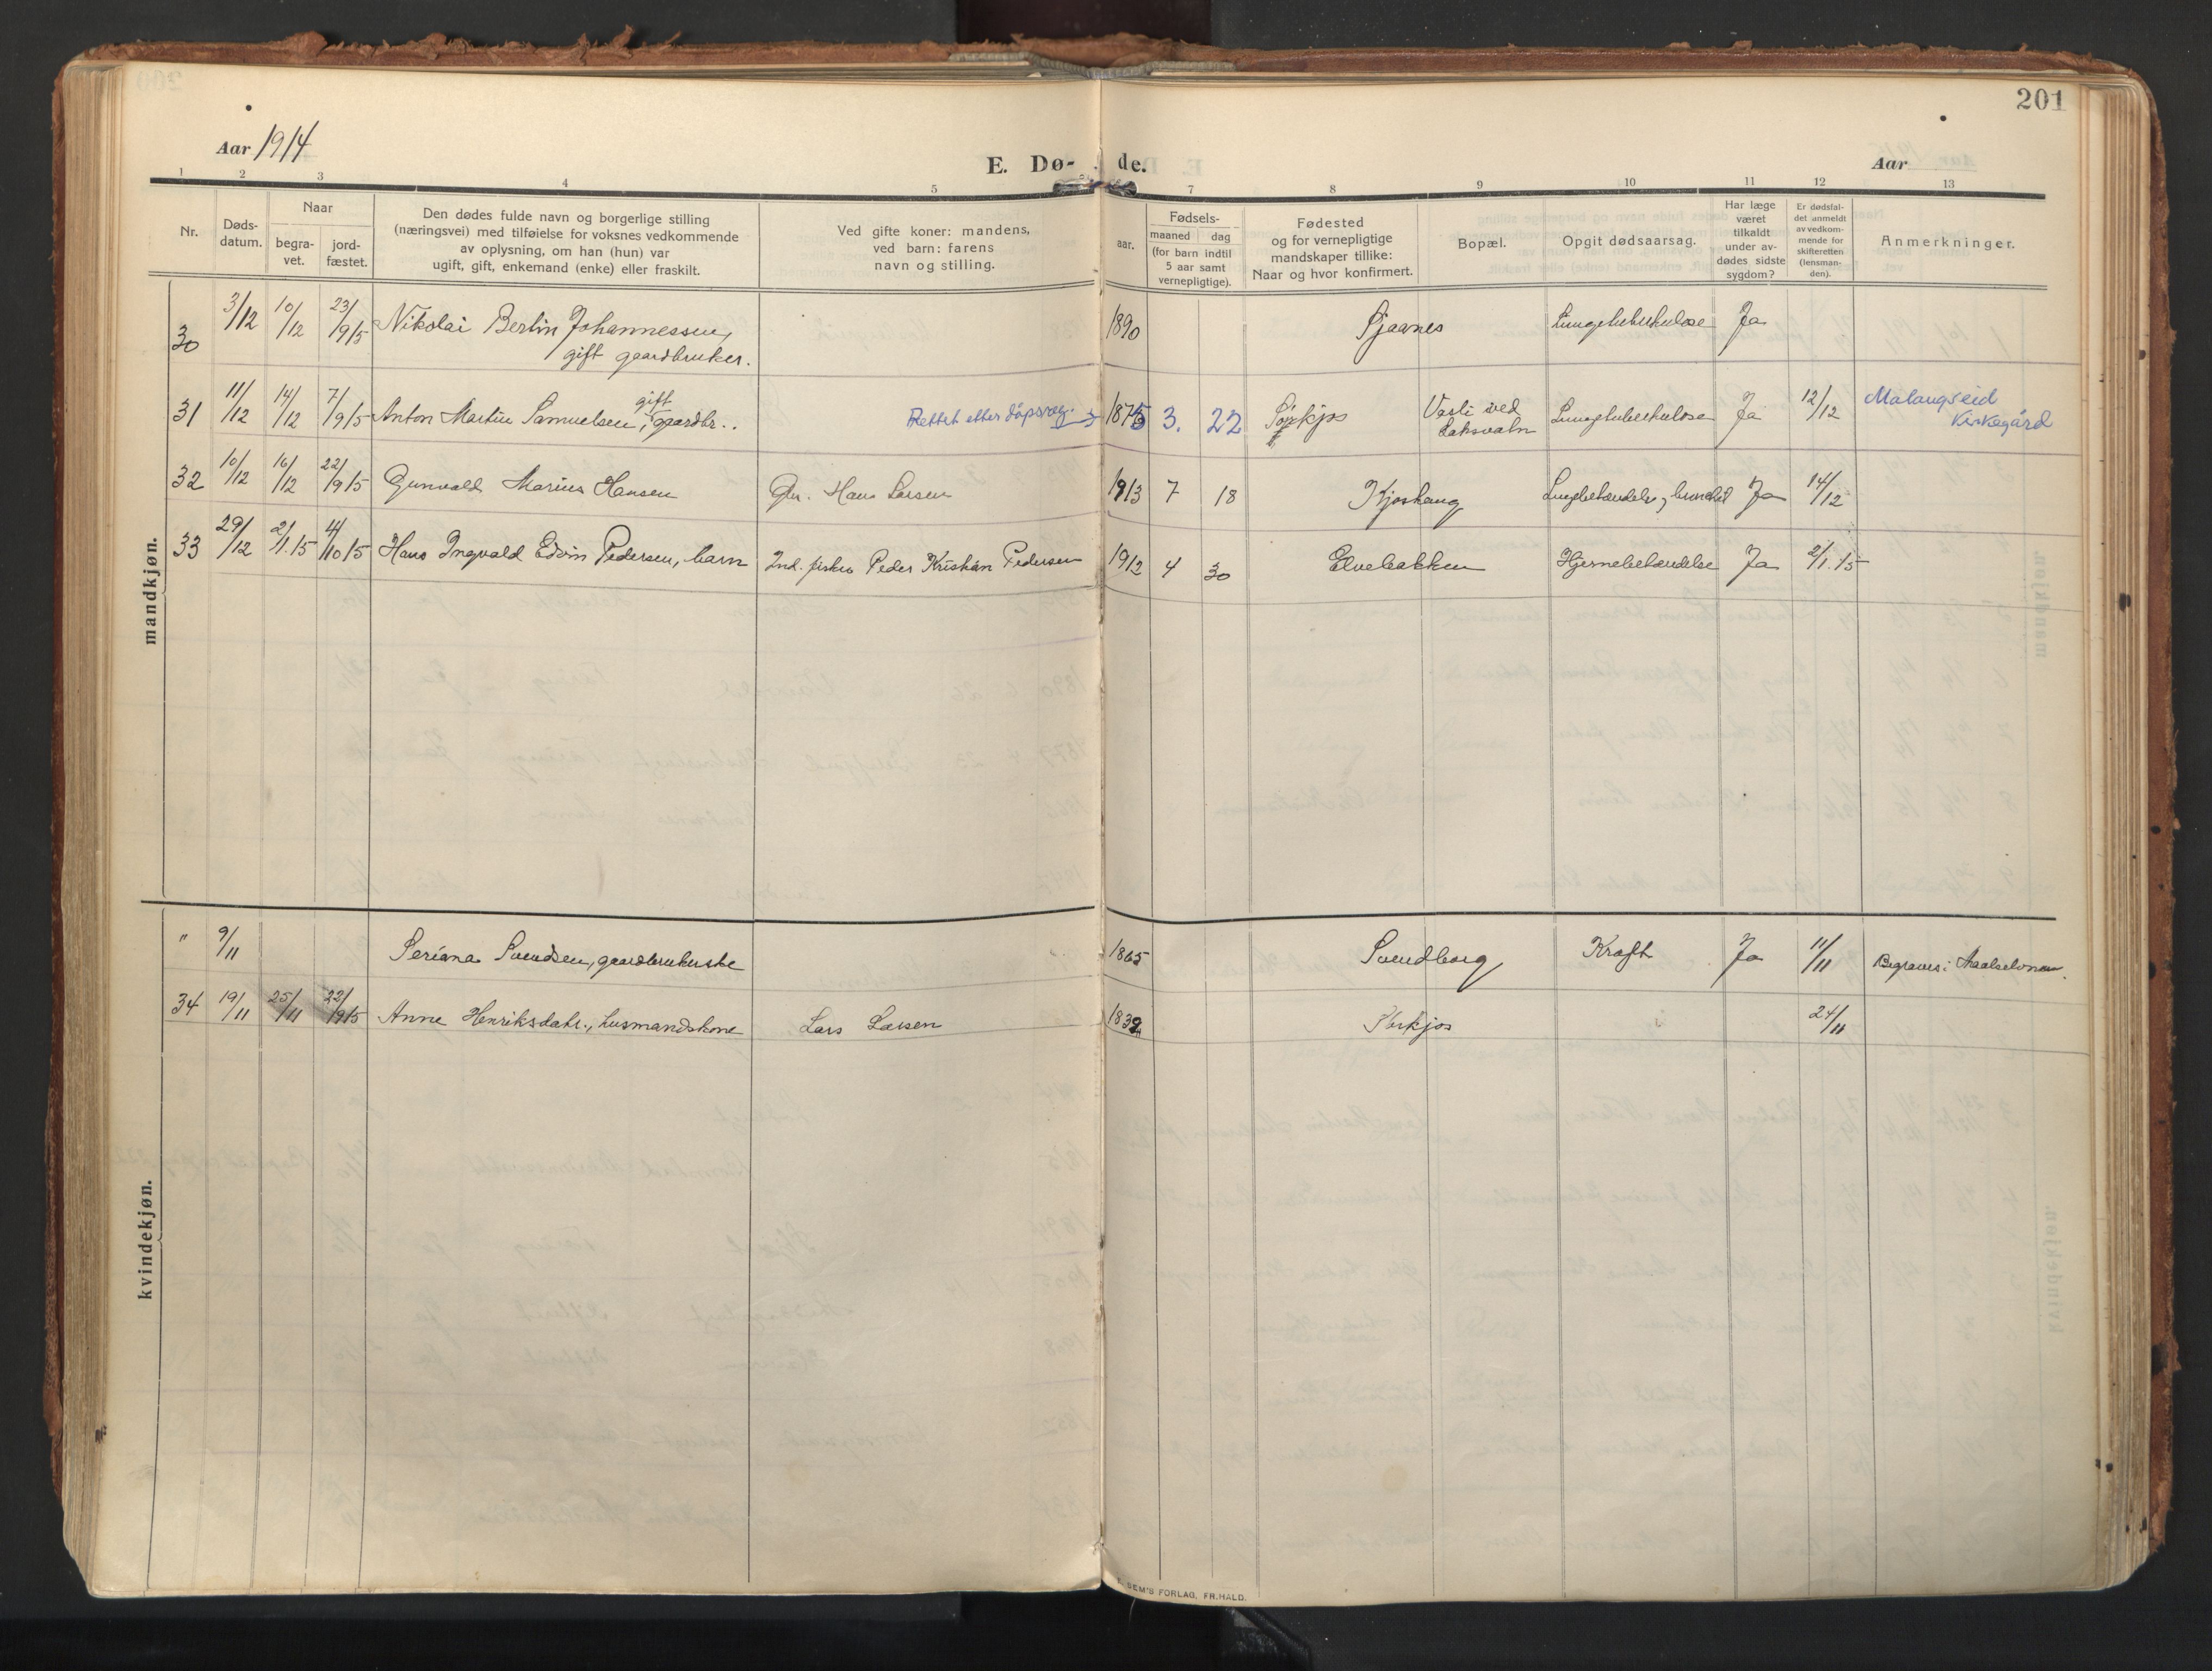 201
Aar 1914
E. Dø- de.
Aar
1 2 3 4 5 7 8 9 10 11 12 13
Nr.
Døds-
datum.
Naar
begra-
vet.
jord-
fæstet.
Den dødes fulde navn og borgerlige stilling
(næringsvei) med tilføielse for voksnes vedkommende
av oplysning, om han (hun) var
ugift, gift, enkemand (enke) eller fraskilt.
Ved gifte koner: mandens,
ved barn: farens
navn og stilling.
aar.
Fødsels-
maaned dag
(for barn indtil
5 aar samt
vernepligtige).
Fødested
og for vernepligtige
mandskaper tillike:
Naar og hvor konfirmert.
Bopæl.
Opgit dødsaarsag.
Har læge
været
tilkaldt
under av-
dødes sidste
sygdom?
Er dødsfal-
det anmeldt
av vedkom-
mende for
skifteretten
(lensman-
den).
Anmerkninger.
mandkjøn.
30 3/12 10/12 23/9 15 Nikolai Berlin Johannessen, 1890 Sjaanes Lungetuberkulose Ja
gift gaardbruker.
31 11/12 14/12 7/9 15 Anton Martin Samuelsen, gift gaardbr.. Rettet etter dåpsreg. 1875 3. 22 Sørkjos Vasli ved Laksvatn Lungetuberkulose Ja 12/12 Malangseid
Kirkegård
32 10/12 16/12 22/9 15 Gunvald Marius Hansen Gbr. Hans Larsen 1913 7 18 Kjoshaug Ja 14/12
33 29/12 2/1.15 4/10 15 Hans Ingvald Edvin Pedersen, barn Ind. fisker Peder Kristian Pedersen 1912 4 30 Elvebakken Hjernebetændelse Ja 2/1.15
kvindekjøn.
" 9/11 Seriana Svendsen, gaardbrukerske 1865 Svendborg Kræft Ja 11/11 Begraves i Maalselven.
34 19/11 25/11 22/9 15 Anne Henriksdatr., husmandskone Lars Larsen 1832 Sørkjos 24/11
SEM'S FORLAG, FR. HALD.